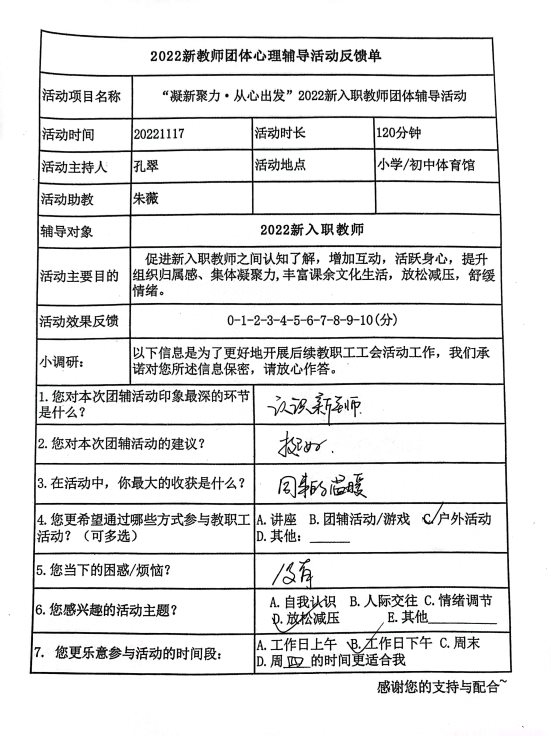 2022新教师团体心理辅导活动反馈单
活动项目名称 “凝新聚力·从心出发”2022新入职教师团体辅导活动
活动时间 20221117 活动时长 120分钟
活动主持人 孔翠 活动地点 小学/初中体育馆
活动助教 朱薇
辅导对象 2022新入职教师
活动主要目的 促进新入职教师之间认知了解，增加互动，活跃身心，提升
组织归属感、集体凝聚力,丰富课余文化生活，放松减压，舒缓
情绪。
活动效果反馈 0-1-2-3-4-5-6-7-8-9-10(分)
小调研： 以下信息是为了更好地开展后续教职工工会活动工作，我们承
诺对您所述信息保密，请放心作答。
1.您对本次团辅活动印象最深的环节
是什么？ 认识新老师
2.您对本次团辅活动的建议？ 挺好.
3.在活动中，你最大的收获是什么？ 同事的温暖
4.您更希望通过哪些方式参与教职工
活动？（可多选） A.讲座 B.团辅活动/游戏 C.户外活动
D.其他：______
5.您当下的困惑/烦恼？ 没有
6.您感兴趣的活动主题？ A.自我认识 B.人际交往 C.情绪调节
D.放松减压 E.其他__________
7. 您更乐意参与活动的时间段： A.工作日上午 B.工作日下午 C.周末
D.周四的时间更适合我
感谢您的支持与配合~